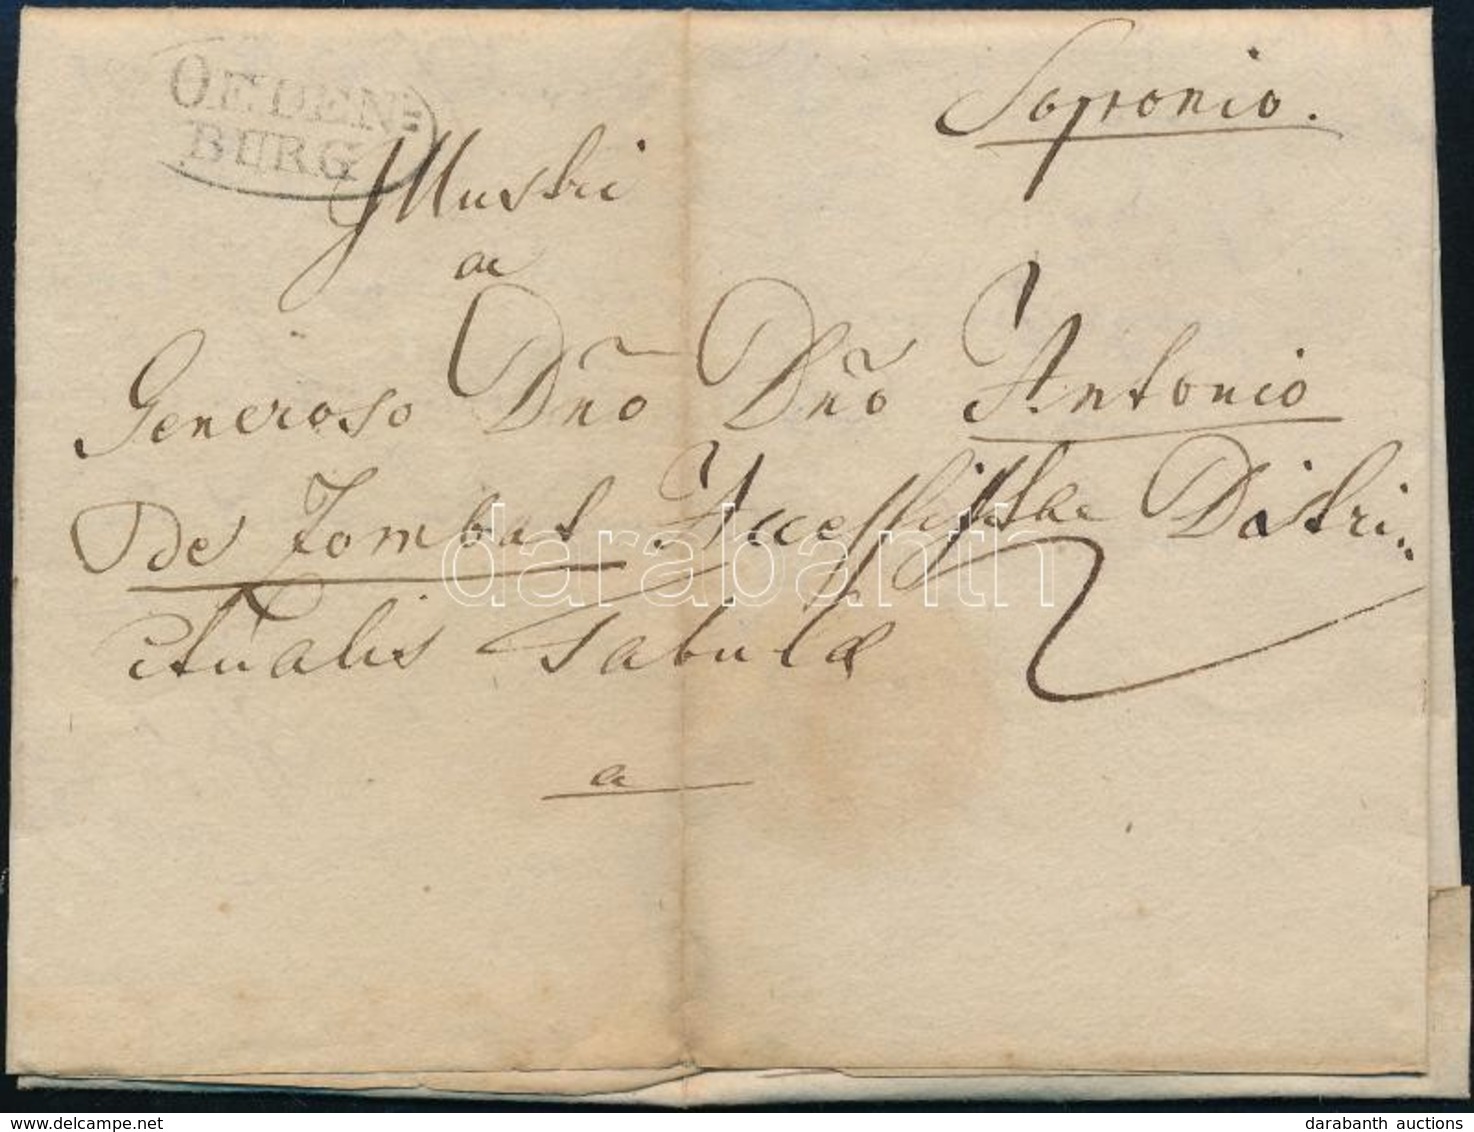 OEDEN=
BURG
Sopronio.
Illustri
ac
Generoso Dno Dno Antonio
De Zombat Accessistae Distri„
ctualis Tabulæ
a
2
darabanth
darabanth auctions